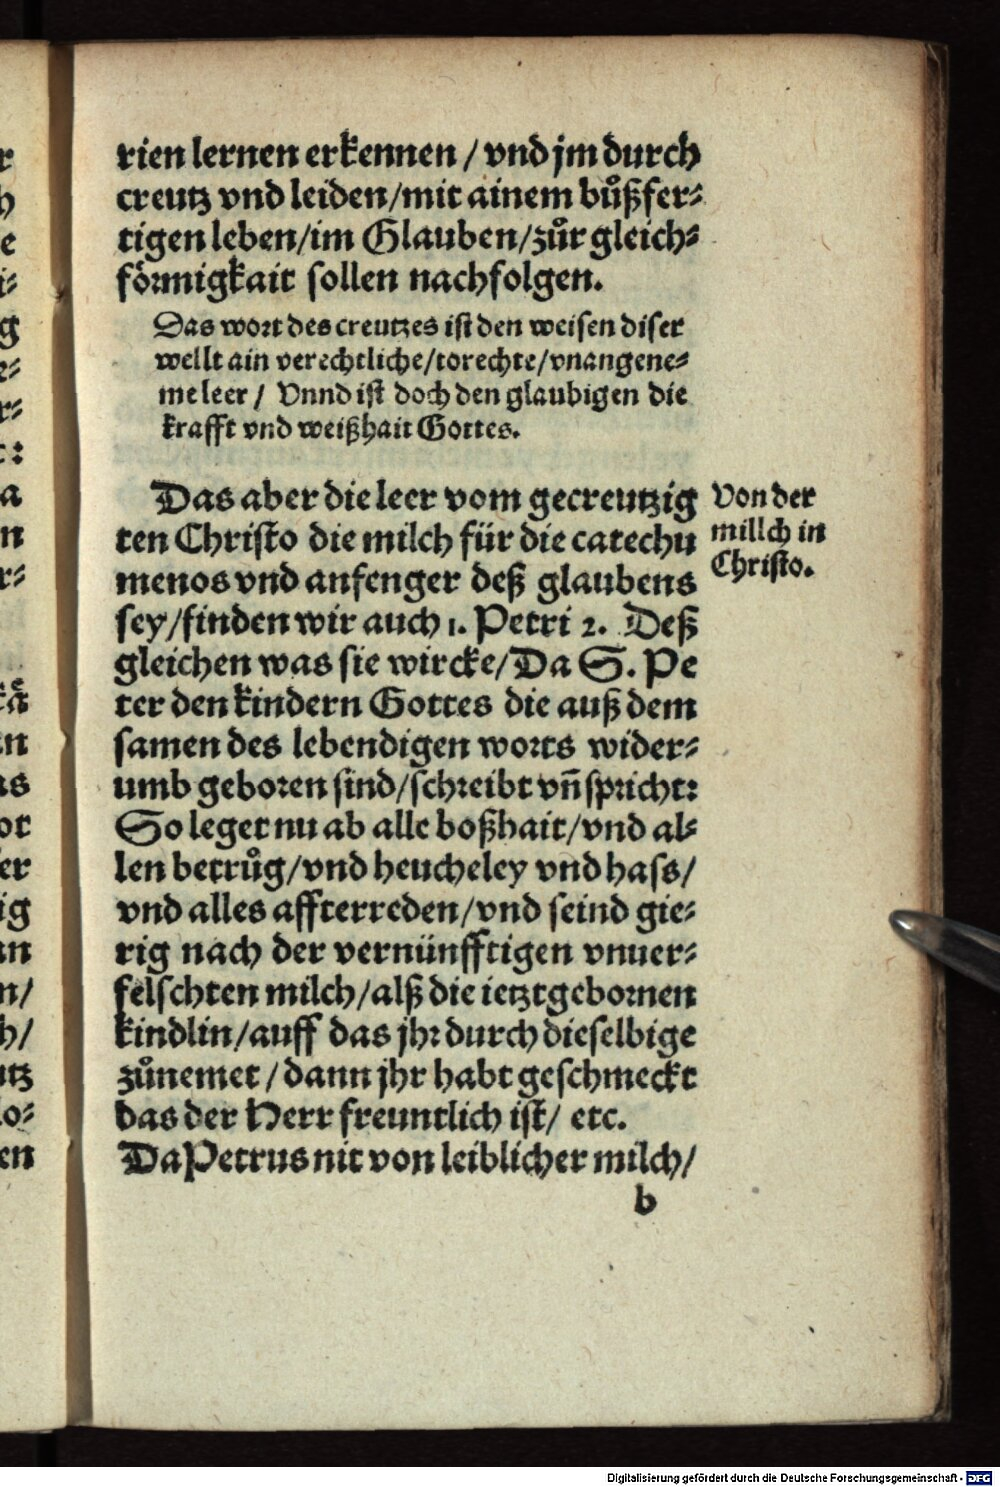 rien lernen erkennen / vnd jm durch
creutz vnd leiden/mit ainem bůßfer⸗
tigen leben/im Glauben/zůr gleich⸗
förmigkait sollen nachfolgen.
Das wort des creutzes ist den weisen diser
wellt ain verechtliche/torechte/vnangene⸗
me leer / Vnnd ist doch den glaubigen die
krafft vnd weißhait Gottes.
Das aber die leer vom gecreutzig
ten Christo die milch für die catechu
menos vnd anfenger deß glaubens
sey/finden wir auch 1. Petri 2. Deß
gleichen was sie wircke/Da S. Pe
ter den kindern Gottes die auß dem
samen des lebendigen worts wider⸗
umb geboren sind/schreibt vn̄ spricht:
So leget nu ab alle boßhait/vnd al⸗
len betrůg/vnd heucheley vnd hass/
vnd alles affterreden/vnd seind gie⸗
rig nach der vernünfftigen vnuer⸗
felschten milch/alß die ietztgebornen
kindlin/auff das jhr durch dieselbige
zůnemet / dann jhr habt geschmeckt
das der Herr freuntlich ist/ etc.
Da Petrus nit von leiblicher milch/
b
Von der
millch in
Christo.
Digitalisierung gefördert durch die Deutsche Forschungsgemeinschaft - DFG